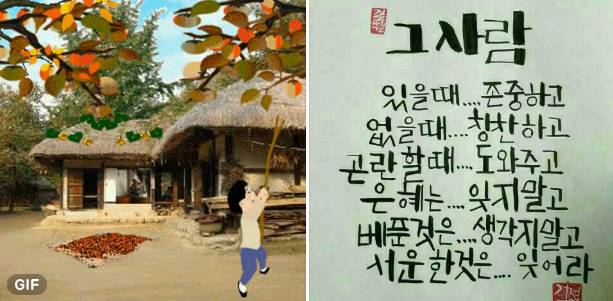 GIF
그 사람
있을때....존중하고
없을때....칭찬하고
곤란할때....도와주고
은혜는....잊지말고
베푼것은....생각지말고
서운한것은....잊어라